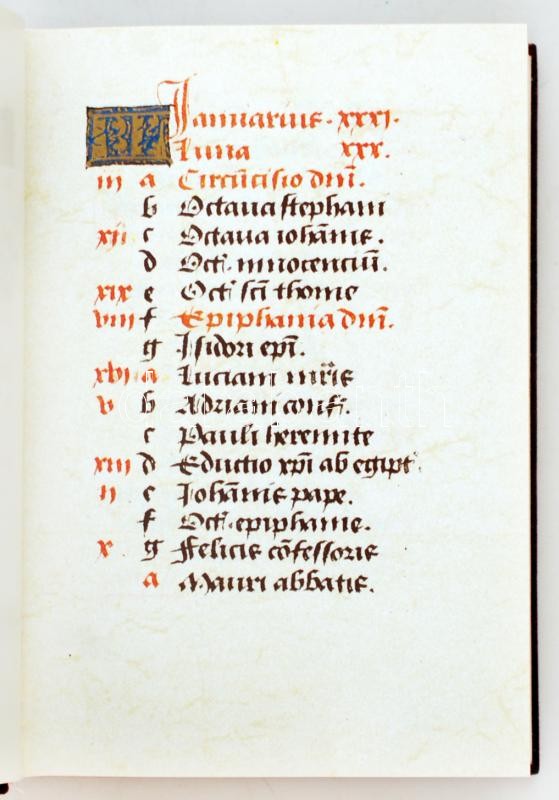 KL Januarius · xxxi ·
Luna xxx .
iii a Circu͂cisio dn͂i .
b Octaua stephani
xij c Octaua ioha͂nis .
d Oct͂ · innocenciu͂ .
xix e Oct͂ sc͂i thome
viii f Epiphania dn͂i .
g Jsidori ep͂i .
xvi a Luciani mr͂is
v b Adriani conf͂ .
c Pauli heremite
xiii d Eductio xp͂i ab egipt͂
ii e Joha͂nis pape .
f Oct͂ · epiphanie .
x g Felicis co͂fessoris
a Mauri abbatis .